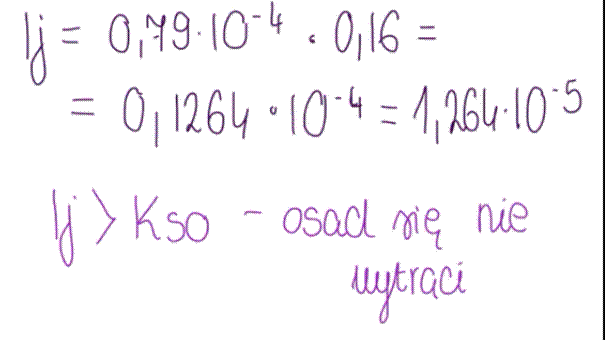 Ij = 0,79·10⁻⁴ · 0,16 =
= 0,1264 · 10⁻⁴ = 1,264·10⁻⁵
Ij > Kso - osad się nie
wytrąci